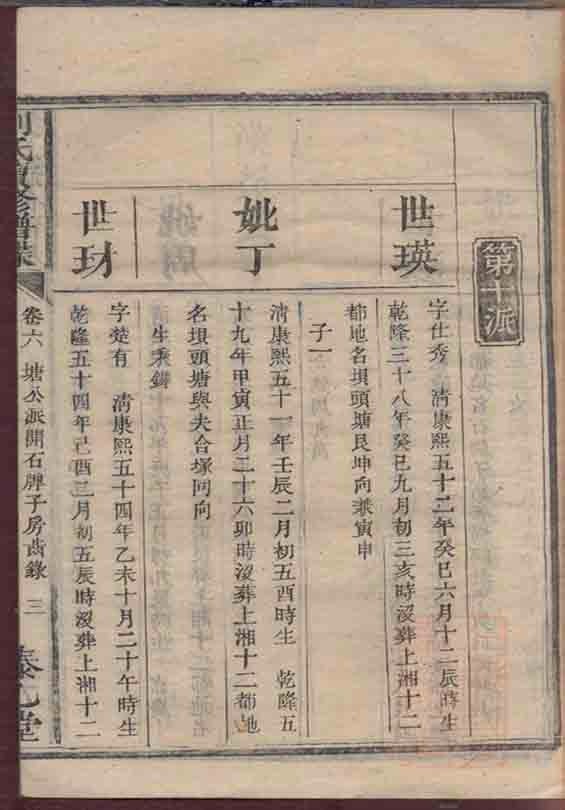 第十派
世瑛
字仕秀 清康熙五十二年癸巳六月十二辰時生
乾隆三十八年癸巳九月初三亥時沒葬上湘十二
都地名垻頭塘艮坤向兼寅申
子一
妣丁
清康熙五十一年壬辰二月初五酉時生 乾隆五
十九年甲寅正月二十六卯時沒葬上湘十二都地
名垻頭塘與夫合塚同向
生秉
世玏
字楚有 清康熙五十四年乙未十月二十午時生
乾隆五十四年己酉三月初五辰時沒葬上湘十二
氏續修譜
卷六 塘公派開石牌子房齒錄 三
堂